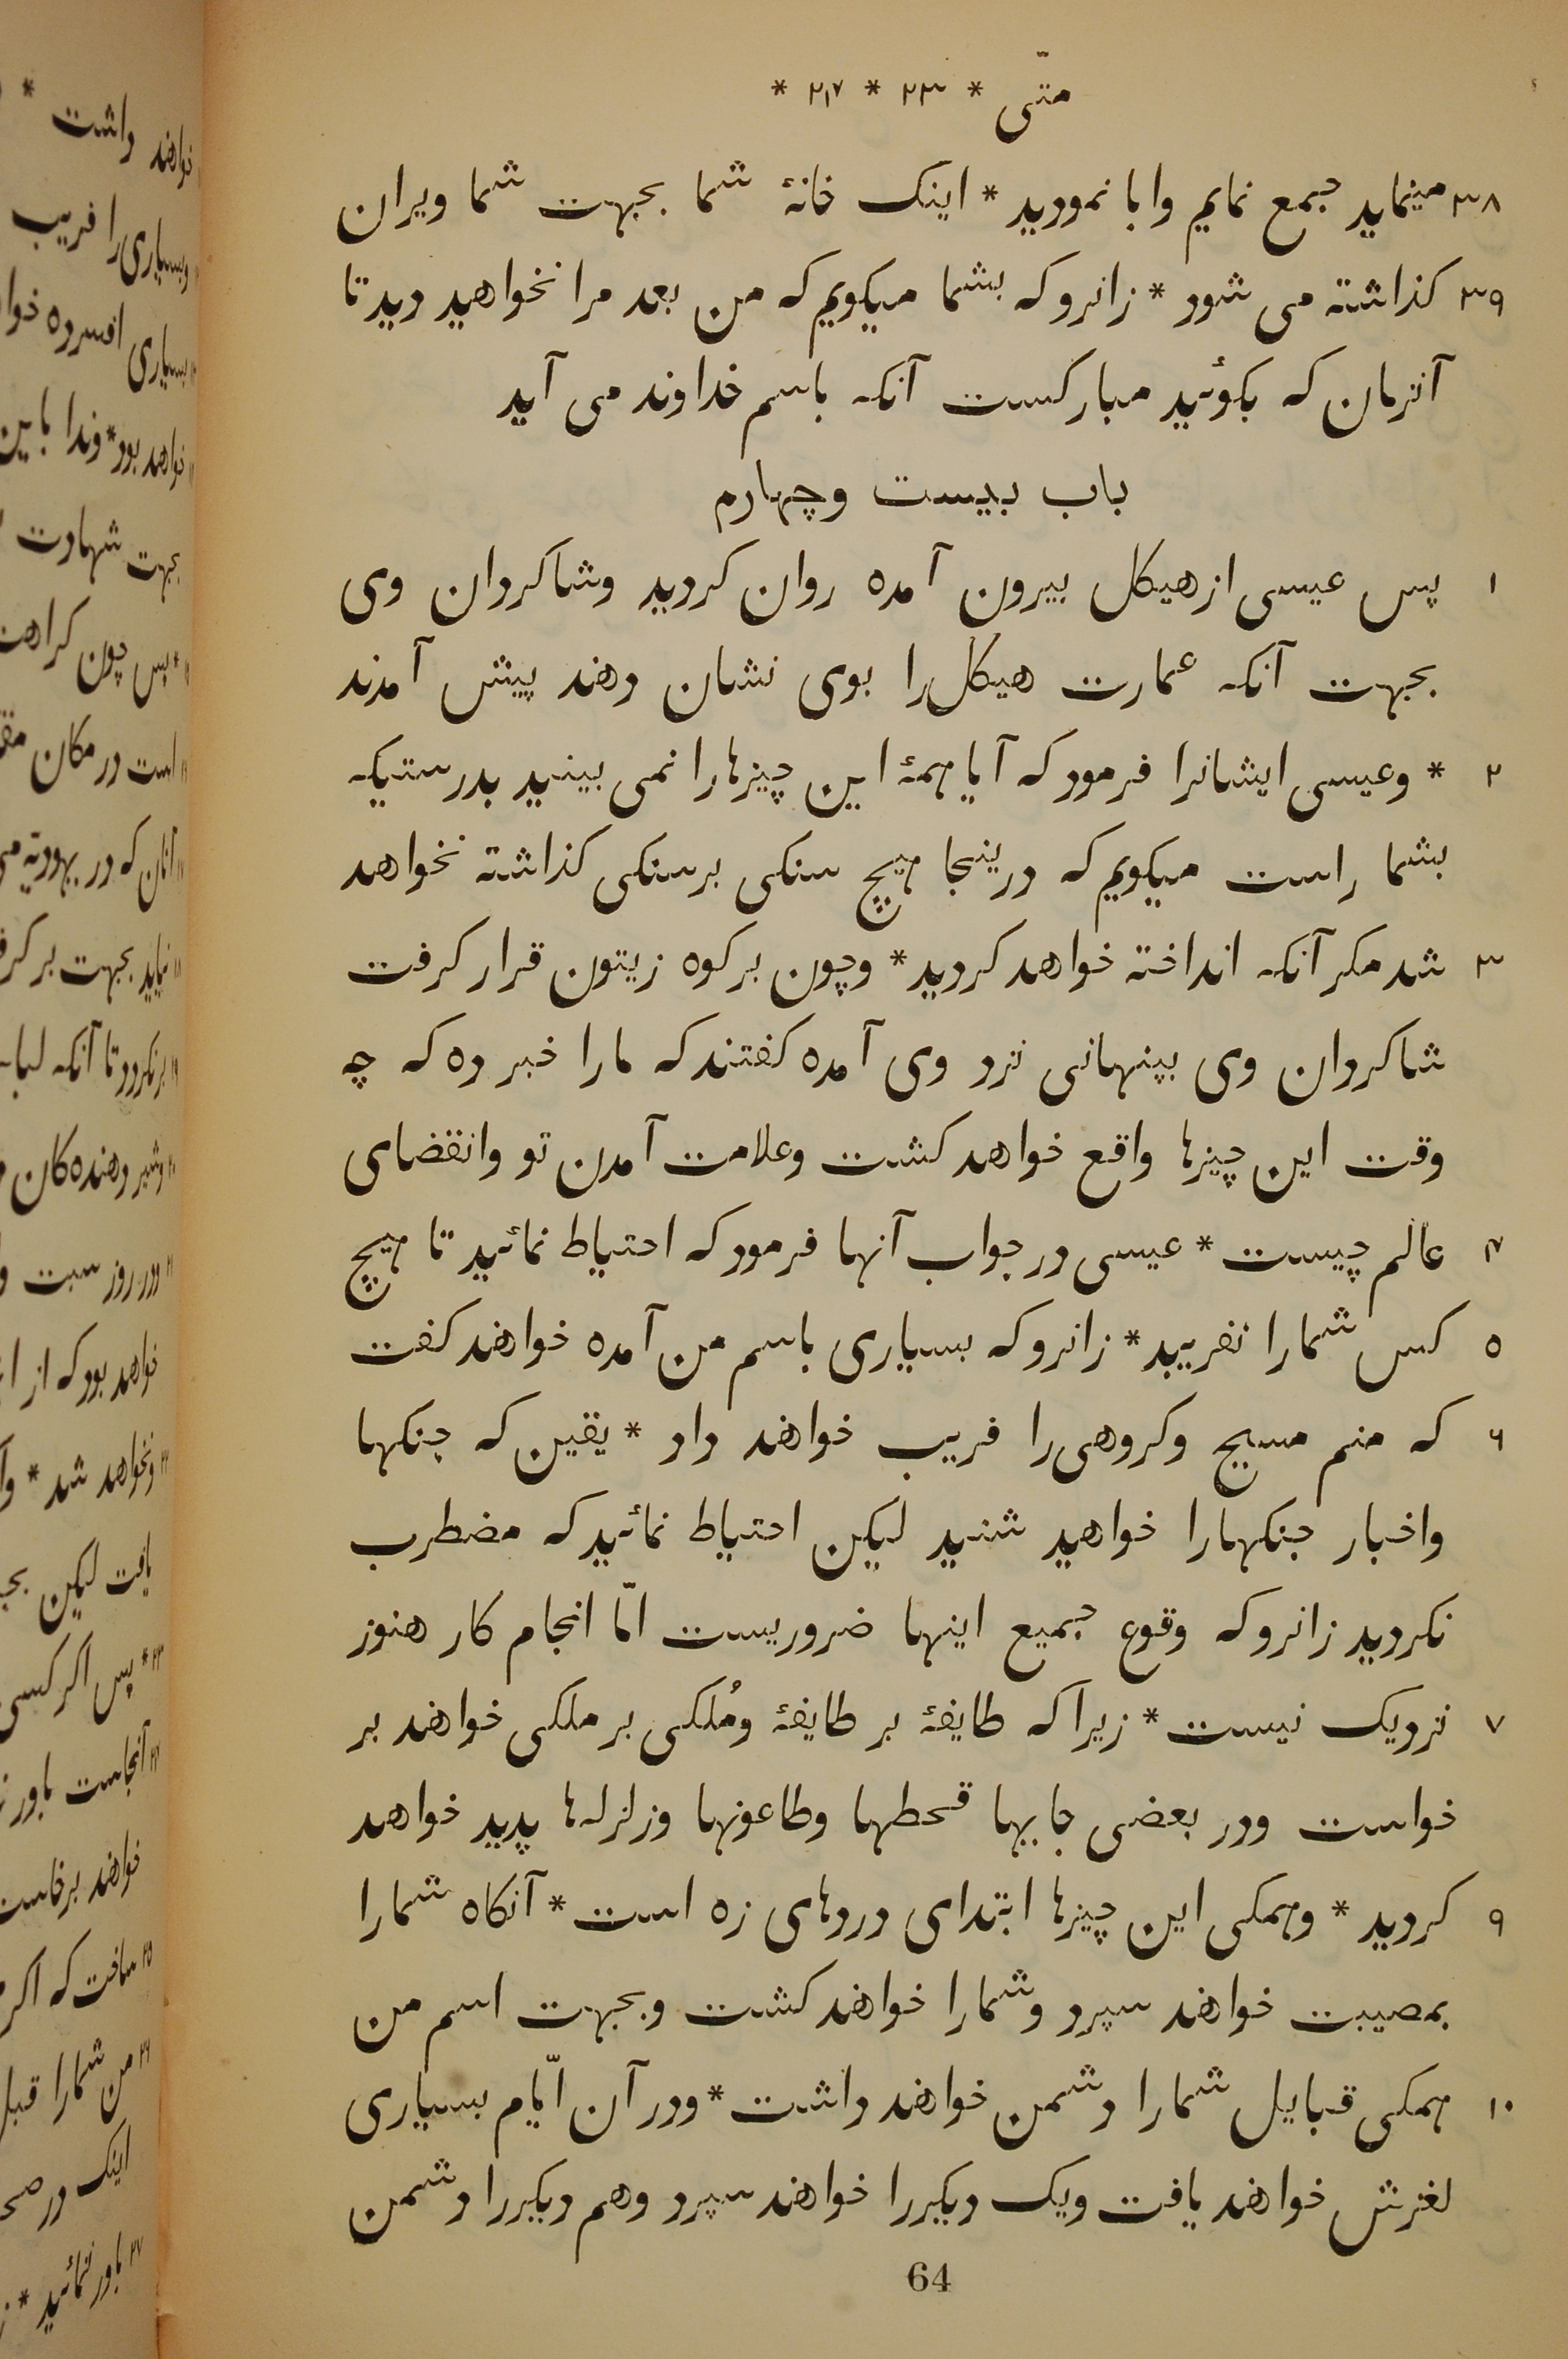 متّی * ۲۳ * ۲۴ *
۳۸ مینماید جمع نمایم وابا نمودید * اینک خانهٔ شما بجهت شما ویران
۳۹ کذاشته می شود * زانرو که بشما میکویم که من بعد مرا نخواهید دید تا
آنزمان که بکوئید مبارکست آنکه باسم خداوند می آید
باب بیست وچهارم
۱ پس عیسی از هیکل بیرون آمده روان کردید وشاکردان وی
بجهت آنکه عمارت هیکل را بوی نشان دهند پیش آمدند
۲ * وعیسی ایشانرا فرمود که آیا همهٔ این چیزها را نمی بینید بدرستیکه
بشما راست میکویم که درینجا هیچ سنکی بر سنکی کذاشته نخواهد
۳ شد مکر آنکه انداخته خواهد کردید * وچون بر کوه زیتون قرار کرفت
شاکردان وی بپنهانی نزد وی آمده کفتند که مارا خبر ده که چه
وقت این چیزها واقع خواهد کشت وعلامت آمدن تو وانقضای
۴ عالم چیست * عیسی در جواب آنها فرمود که احتیاط نمائید تا هیچ
۵ کس شمارا نفریبد * زانرو که بسیاری باسم من آمده خواهند کفت
۶ که منم مسیح وکروهی را فریب خواهند داد * یقین که جنکها
واخبار جنکهارا خواهید شنید لیکن احتیاط نمائید که مضطرب
نکردید زانرو که وقوع جمیع اینها ضروریست امّا انجام کار هنوز
۷ نزدیک نیست * زیرا که طایفهٔ بر طایفهٔ ومُلکی بر ملکی خواهند بر
خواست ودر بعضی جایها قحطها وطاعونها وزلزله‌ها پدید خواهد
۹ کردید * وهمکی این چیزها ابتدای دردهای زه است * آنکاه شمارا
بمصیبت خواهند سپرد وشمارا خواهند کشت وبجهت اسم من
۱۰ همکی قبایل شمارا دشمن خواهند داشت * ودر آن ایّام بسیاری
لغزش خواهند یافت ویک دیکررا خواهند سپرد وهم دیکررا دشمن
64